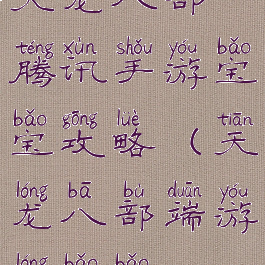 téng xùn shǒu yóu bǎo
腾讯手游宝
bǎo gōng luè tiān
宝攻略（天
lóng bā bù duān yóu
龙八部端游
lóng bǎo bǎo